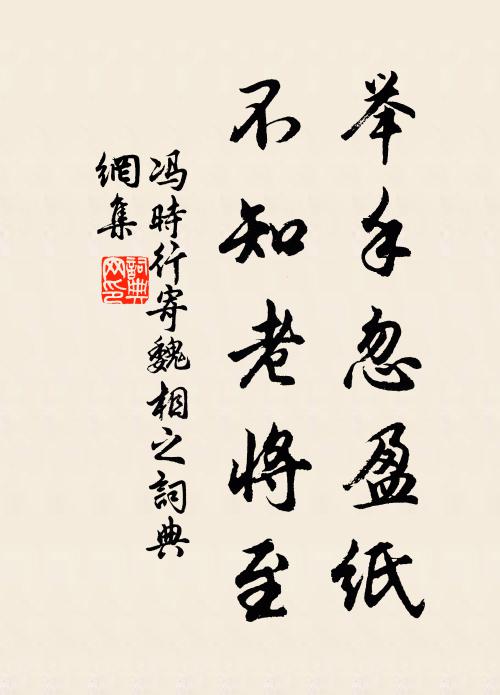 举手忽盈纸
不知老将至
冯時行寄魏相之詞典
網集
詞典
网印